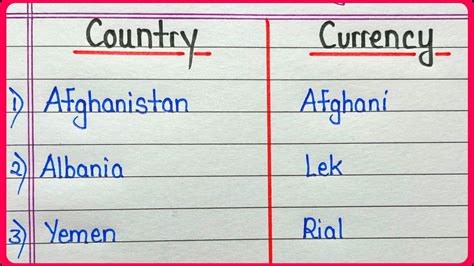 Country Currency
1) Afghanistan Afghani
2) Albania Lek
3) Yemen Rial